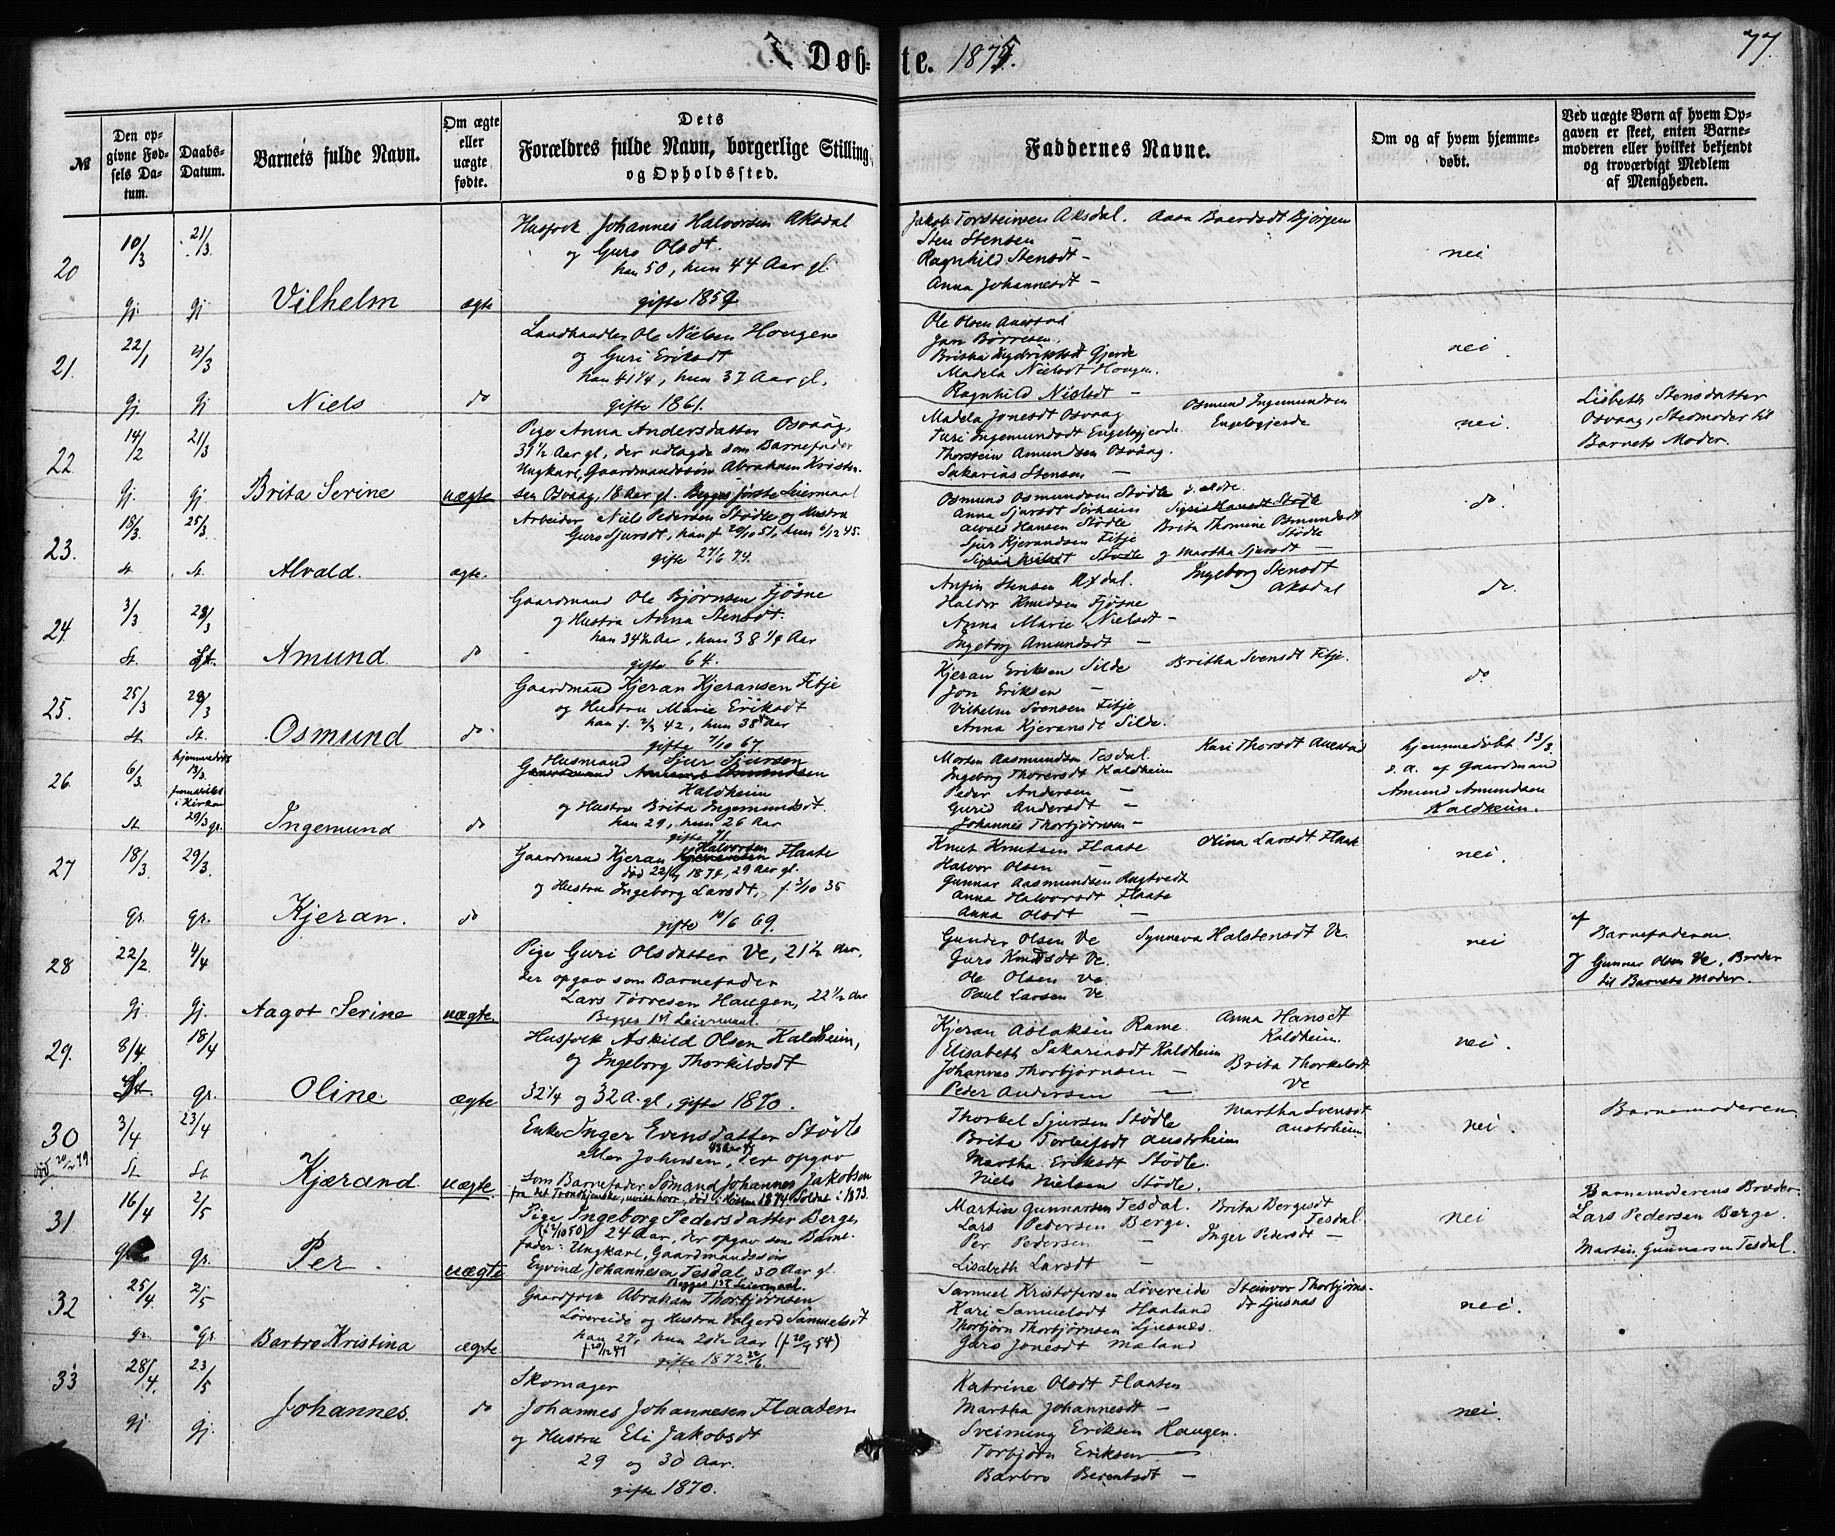 Døbte. 1875.
77.
№
Den opgivne Fødsels Datum.
Daabs-Datum.
Barnets fulde Navn.
Om ægte eller uægte fødte.
Dets Forældres fulde Navn, borgerlige Stilling og Opholdssted.
Faddernes Navne.
Om og af hvem hjemmedøbt.
Ved uægte Børn af hvem Opgaven er skeet, enten Barnemoderen eller hvilket bekjendt og troværdigt Medlem af Menigheden.
20
10/3
21/3
gj.
gj
Vilhelm
ægte
Husfolk Johannes Halvorsen Aksdal
og Guro Olsdt.
han 50, hun 44 Aar gl.
gifte 1859
Jakob Torsteinsen Aksdal. Aasa Baardsdt Bjørgen
Sten Stensen —
Ragnhild Stensdt —
Anna Johannesdt —
nei
21.
22/1
21/3
gj.
gj
Niels
do
Landhandler Ole Nielsen Hougen
og Guri Eriksdt
han 41 1/4, hun 37 Aar gl.
gifte 1861.
Ole Olsen Auestad
Jan Børresen.
Britha Gjerde
Madela Nielsdt Hougen.
Ragnhild Nielsdt —
nei
22.
14/2
21/3
gj.
gj.
Brita Serine
uægte
Pige Anna Andersdatter Osvaag,
31 1/2 Aar gl., der udlagde som Barnefader
Ungkarl, Gaardmandssøn Abraham Kristensen Osvaag, 18 Aar gl. Begges første Leiermaal
Madela Jonesdt Osvaag Osmund Ingemundsen
Turi Ingemundsdt Engelsgjerde Engelsgjerde
Thorstein Amundsen Osvaag.
Sakarias Stensen —
nei.
Lisbeth Stensdatter
Osvaag, Stedmoder til
Barnets Moder.
23.
18/3.
25/3
St.
St.
Alvald.
ægte.
Arbeider Niels Pedersen Stødle og Hustru
Guro Sjursdt, han f 20/10 51, hun 6/12 45.
gifte 27/6 74.
Osmund Osmundsen Stødle d. eldre
Anna Sjursdt Sørheim
Alvald Hansen Stødle Brita Thomine Osmundsdt Stødle
Sjur Kjerandsen Fitje
Stødle og Martha Sjursdt —
do
24.
3/3
28/3
St.
St.
Amund
do
Gaardmand Ole Bjørnsen Fjøsne
og Hustru Anna Stensdt.
han 34 1/2 Aar, hun 38 1/4 Aar
gifte 64.
Anfin Stensen Axdal. Ingeborg Stensdt
Haldor Knudsen Fjøsne Aksdal
Anna Marie Nielsdt —
Ingeborg Amundsdt —
do.
25.
25/3
28/3
St.
St.
Osmund
do.
Gaardmand Kjeran Kjeransen Fitje
og Hustru Marie Eriksdt
han f. 42, hun 38 Aar
gifte 7/10 67.
Kjeran Eriksen Silde Britha Svensdt Fitje.
Jon Eriksen —
Vilhelm Svensen Fitje
Anna Kjeransdt Silde.
do
26
6/3.
hjemmedøbt 13/3. fremstillet i Kirken 29/3 gr.
St.
Ingemund
do
Husmand Sjur Sjursen
Gaardmand Amund Amundsen
Haldheim
og Hustru Brita Ingemundsdt
han 29, hun 26 Aar
gifte 71.
Morten Aasmundsen Tesdal. Kari Thorsdt Auestad
Ingeborg Thorersdt Kaldheim
Peder Andersen —
Gurid Andersdt —
Johannes Thorbjørnsen —
hjemmedøbt 13/3.
s. a. af Gaardmand
Amund Amundsen
Kaldheim.
27
18/3.
29/3.
gr.
gr.
Kjeran.
do
Gaardmand Kjeran Halvorsen Flaate
død 1874, 29 Aar gl.
og Hustru Ingeborg Larsdt, f. 3/10 35
gifte 10/6 69.
Knut Knutsen Flaate Olina Larsdt Flaate
Halvor Olsen —
Gunnar Aasmundsen Hugtvedt
Anna Halvorsdt Flaate
Anna Olsdt —
nei.
28
22/2.
4/4
gj.
gj.
Aagot Serine
uægte
Pige Guri Olsdatter Ve, 21 1/2 Aar.
der opgav som Barnefader
Lars Tørresen Haugen, 22 1/2 Aar
Begges 1st Leiermaal.
Gunder Olsen Ve Synneva Halstensdt Ve.
Guro Knudsdt Ve.
Ole Olsen Ve
Paul Larsen Ve
nei
af
Barnefaderen
og Gunnar Olsen Ve, Broder
til Barnets Moder.
29.
8/4
18/4
St.
gr.
Oline
ægte
Husfolk Askild Olsen Kaldheim,
og Ingeborg Thorkildsdt
32 1/4 og 32 A. gl., gifte 1870.
Kjeran Aslaksen Rame Anna Hansdt
Elisabeth Sakariasdt Kaldheim Kaldheim.
Johannes Thorbjørnsen — Brita Thorkelsdt
Peder Andersen — Ve
nei.
30
død 20/12 79.
3/4
23/4
St
St
Kjærand
uægte.
Enke Inger Evensdatter Stødle
eller Johnsen, der opgav
som Barnefader Sømand Johannes Jakobsen
fra det Trondhjemske, uvist hvor, død i Høsten 1874 Soldat i 1873.
Thorkel Sjursen Stødle Martha Svensdt
Brita Torleifsdt Austrheim Austrheim
Martha Eriksdt Stødle.
Niels Nielsen Stødle.
nei.
Barnemoderen
31
16/4
2/5
gr.
Per
uægte
Pige Ingeborg Pedersdatter Berge
(12/10 50) 24 Aar, der opgav som Barnefader: Ungkarl, Gaardmandssøn
Eyvind Johannesen Tesdal 30 Aar gl.
Begges 1st Leiermaal.
Martin Gunnarsen Tesdal. Brita Bergesdt
Lars Pedersen Berge. Tesdal
Per Pedersen — Inger Pedersdt —
Lisabeth Larsdt —
nei
Barnemoderens Broder
Lars Pedersen Berge.
og
Martin Gunnarsen Tesdal.
32
25/4.
2/5
gr.
gr.
Barbro Kristina
ægte
Gaardfolk Abraham Thorbjørnsen
Løvereide og Hustru Valgerd Samuelsdt
han 27, hun 20 1/2 Aar (f 20/9 54)
f. 20/12 47
gifte 1872
Samuel Kristofersen Løvereide Steinvor Thorbjørnsdt Ljusnas
Kari Samuelsdt Haaland
Thorbjørn Thorbjørnsen Ljusnes.
Guro Jonesdt Maland
nei.
33
28/4.
23/5
gj
gj.
Johannes.
do
Skomager
Johannes Johannesen Flaaten
og Hustru Eli Jakobsdt
29 og 30 Aar.
gifte 1870.
Katrine Olsdt Flaaten
Martha Johannesdt —
Sveinung Eriksen Haugen.
Torbjørn Eriksen —
Barbro Berentsdt —
nei.